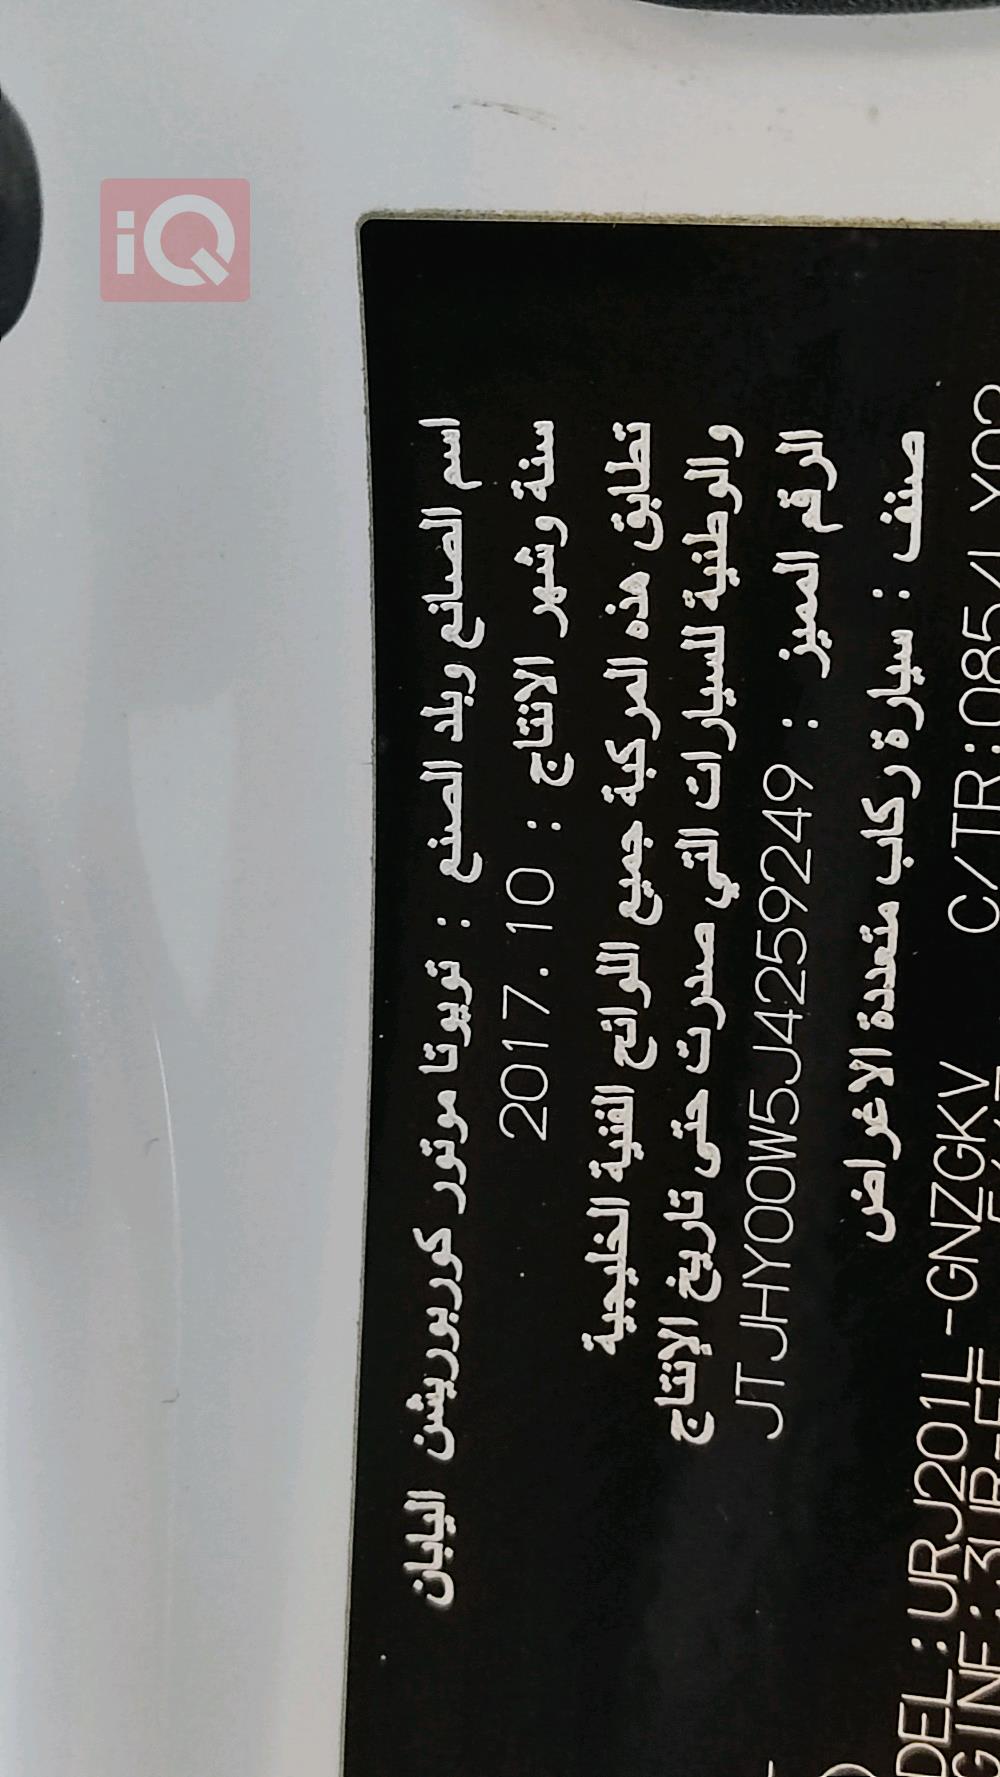 iQ
اسم الصانع وبلد الصنع : تويوتا موتور كوربوريشن اليابان
سنة وشهر الانتاج : 2017.10
تطابق هذه المركبة جميع اللوائح الفنية الخليجية
والوطنية للسيارات التي صدرت حتى تاريخ الإنتاج
الرقم المميز : JTJHY00W5J4259249
صنف : سيارة ركاب متعددة الاغراض
DEL:URJ201L-GNZGKV C/TR:085/L
GINE:3UR-FE